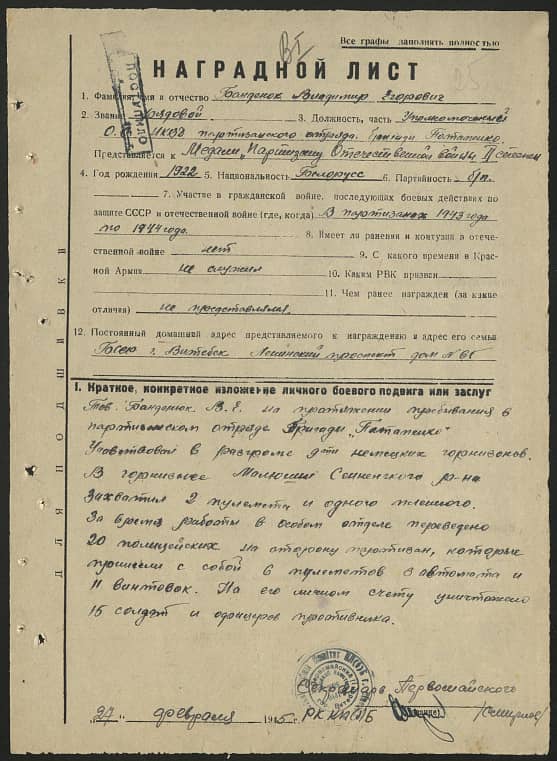 Все графы заполнять полностью
НАГРАДНОЙ ЛИСТ
1. Фамилия, имя и отчество Банденок Владимир Егорович
2. Звание рядовой 3. Должность, часть Уполномоченный
О.О. НКВД партизанского отряда бригады Потапенко.
Представляется к Медали „Партизану Отечественной войны II степени
4. Год рождения 1922 5. Национальность Белорусс 6. Партийность б/п.
7. Участие в гражданской войне, последующих боевых действиях по
защите СССР и отечественной войне (где, когда) В партизанах 1943 года
по 1944 года. 8. Имеет ли ранения и контузии в отече-
ственной войне нет 9. С какого времени в Крас-
ной Армии не служил 10. Каким РВК призван
11. Чем ранее награжден (за какие
отличия) не представлялся.
12. Постоянный домашний адрес представляемого к награждению и адрес его семьи
г. Витебск Ленинский проспект дом №
I. Краткое, конкретное изложение личного боевого подвига или заслуг
Тов. Банденок В.Е. на протяжении пребывания в
партизанском отряде Бригады „Потапенко"
Участвовал в разгроме немецких гарнизонов.
В гарнизоне Сенненского р-на
Захватил 2 пулемета и одного пленного.
За время работы в особом отделе переведено
20 полицейских на сторону партизан, которые
принесли с собой 6 пулеметов 3 автомата и
11 винтовок. На его личном счету уничтожено
15 солдат и офицеров противника.
Секретарь Первомайского
"27" февраля 1945 г. РК КП(б)Б /Смирнов/
ДЛЯ ПОДШИВКИ